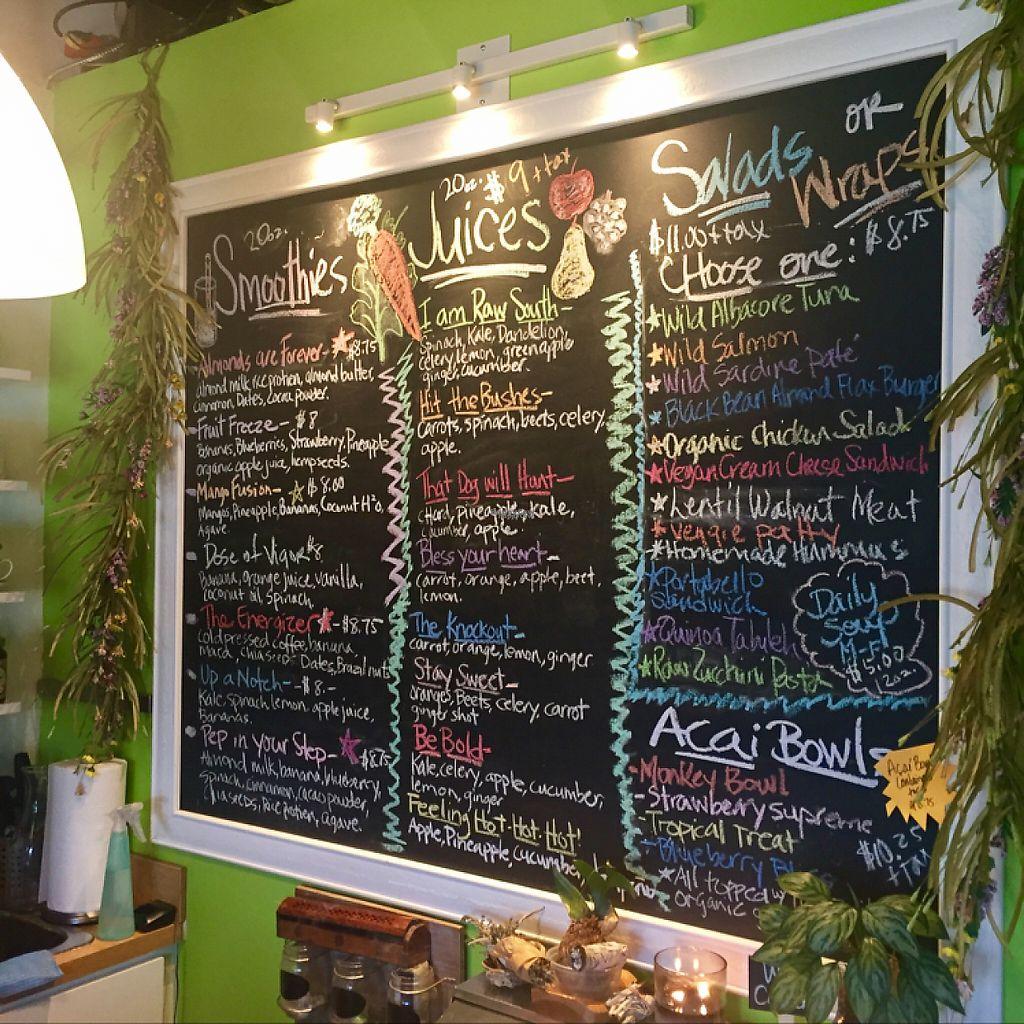 20oz.
Smoothies
Almonds are Forever- $8.75
almond milk, rice protien, almond butter,
cinnamon, Dates, Cocoa powder.
Fruit Freeze- $8
Bananas, Blueberries, Strawberry, Pineapple
organic apple juice, hempseeds.
Mango Fusion- $8.00
Mangos, Pineapple, Bananas, Coconut H²O,
Agave.
Dose of Vigur $8
Banana, orange juice, vanilla,
coconut oil, spinach.
The Energizer - $8.75
Cold pressed coffee, banana,
maca, chia seeds, Dates, Brazil nuts
Up a Notch- $8.-
Kale, spinach, lemon, apple juice,
bananas.
Pep in your Step- $8.75
Almond milk, banana, blueberry,
spinach, cinnamon, cacao powder,
chia seeds, Rice Protien, agave.
20oz. $9 + tax
Juices
I am Raw South-
Spinach, Kale, Dandelion,
celery, lemon, green apple
ginger, cucumber.
Hit the Bushes-
Carrots, spinach, beets, celery,
apple.
That Dog will Hunt-
Chard, pineapple, kale,
cucumber, apple.
Bless your heart-
carrot, orange, apple, beet,
lemon.
The Knockout-
carrot, orange, lemon, ginger
Stay Sweet-
oranges, Beets, celery, carrot
ginger shot
Be Bold-
Kale, celery, apple, cucumber,
lemon, ginger
Feeling Hot Hot Hot!
Apple, Pineapple, cucumber
Salads OR
Wraps
$11.00 + tax
Choose one: $8.75
Wild Albacore Tuna
Wild Salmon
Wild Sardine Paté
Black Bean Almond Flax Burger
Organic Chicken Salad
Vegan Cream Cheese Sandwich
Lentil Walnut Meat
Veggie patty
Homemade Hummus
Portabello
Sandwich
Quinoa Tabuleh
Raw Zucchini Pasta
Daily
Soup
M-F
$5.00
12oz
Acai Bowl
Acai Bowl
-Monkey Bowl
-Strawberry Supreme
-Tropical Treat
-Blueberry
$10.25
+ tax
*All topped w/
organic